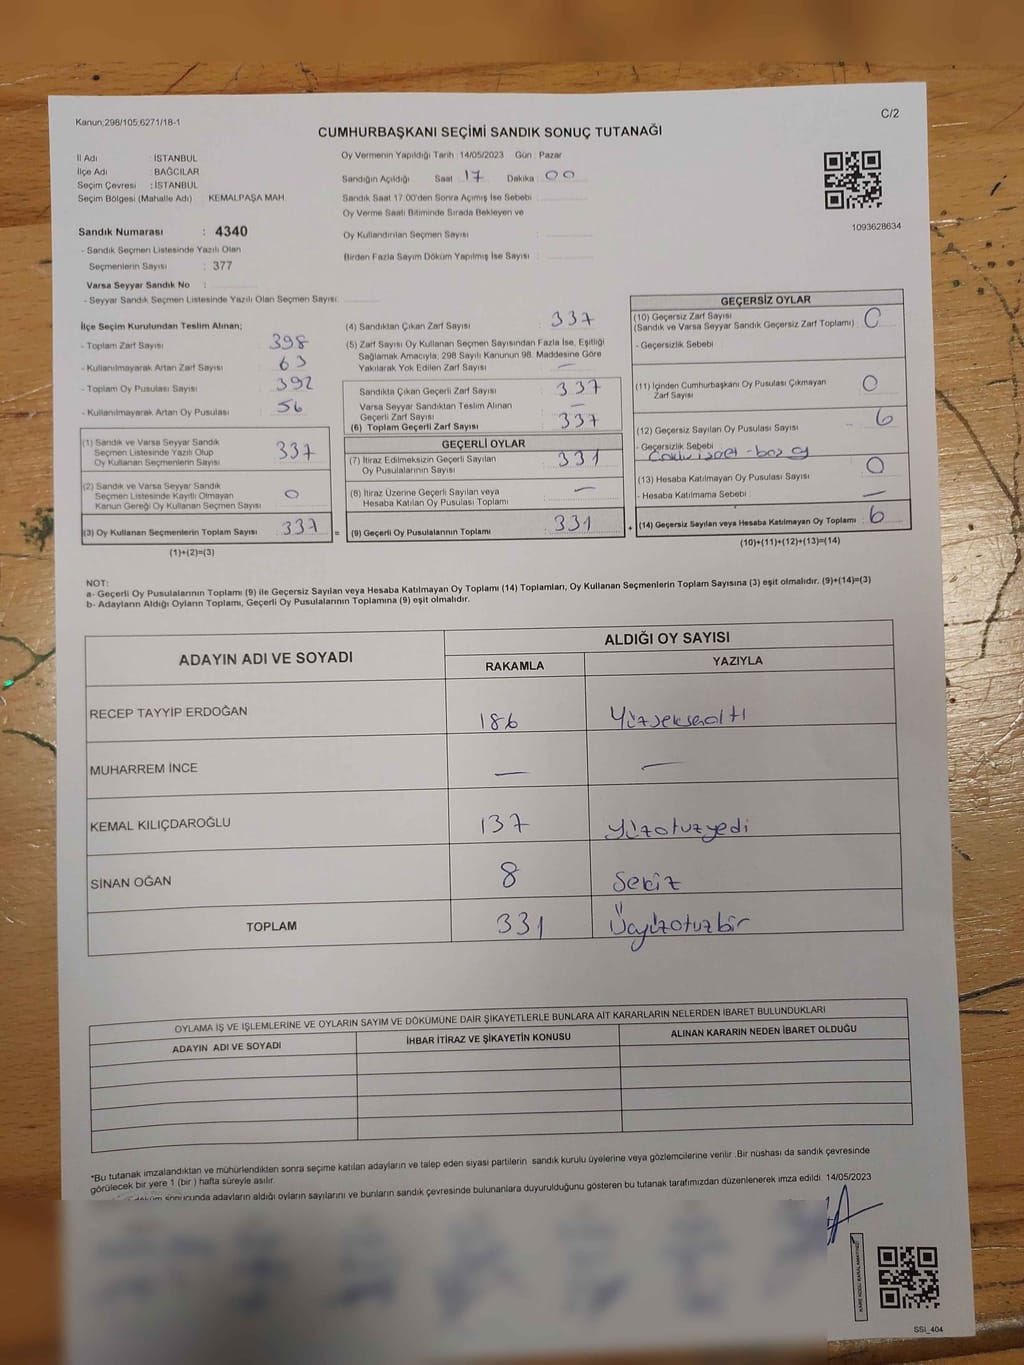 Kanun;298/105;6271/18-1
C/2
CUMHURBAŞKANI SEÇİMİ SANDIK SONUÇ TUTANAĞI
İl Adı : İSTANBUL
İlçe Adı : BAĞCILAR
Seçim Çevresi : İSTANBUL
Seçim Bölgesi (Mahalle Adı) KEMALPAŞA MAH.
Sandık Numarası : 4340
- Sandık Seçmen Listesinde Yazılı Olan
Seçmenlerin Sayısı : 377
Varsa Seyyar Sandık No :
- Seyyar Sandık Seçmen Listesinde Yazılı Olan Seçmen Sayısı:
Oy Vermenin Yapıldığı Tarih : 14/05/2023 Gün : Pazar
Sandığın Açıldığı Saat : 17 Dakika : 00
Sandık Saat 17.00'den Sonra Açımış İse Sebebi :
Oy Verme Saati Bitiminde Sırada Bekleyen ve
Oy Kullandırılan Seçmen Sayısı :
Birden Fazla Sayım Döküm Yapılmış İse Sayısı :
1093628634
İlçe Seçim Kurulundan Teslim Alınan;
- Toplam Zarf Sayısı : 398
- Kullanılmayarak Artan Zarf Sayısı : 63
- Toplam Oy Pusulası Sayısı : 392
- Kullanılmayarak Artan Oy Pusulası : 56
(1) Sandık ve Varsa Seyyar Sandık
Seçmen Listesinde Yazılı Olup
Oy Kullanan Seçmenlerin Sayısı : 337
(2) Sandık ve Varsa Seyyar Sandık
Seçmen Listesinde Kayıtlı Olmayan
Kanun Gereği Oy Kullanan Seçmen Sayısı : 0
(3) Oy Kullanan Seçmenlerin Toplam Sayısı : 337 =
(1)+(2)=(3)
(4) Sandıktan Çıkan Zarf Sayısı : 337
(5) Zarf Sayısı Oy Kullanan Seçmen Sayısından Fazla İse, Eşitliği
Sağlamak Amacıyla, 298 Sayılı Kanunun 98. Maddesine Göre
Yakılarak Yok Edilen Zarf Sayısı : —
Sandıkta Çıkan Geçerli Zarf Sayısı : 337
Varsa Seyyar Sandıktan Teslim Alınan
Geçerli Zarf Sayısı : —
(6) Toplam Geçerli Zarf Sayısı : 337
GEÇERLİ OYLAR
(7) İtiraz Edilmeksizin Geçerli Sayılan
Oy Pusulalarının Sayısı : 331
(8) İtiraz Üzerine Geçerli Sayılan veya
Hesaba Katılan Oy Pusulası Toplamı : —
(9) Geçerli Oy Pusulalarının Toplamı : 331 +
GEÇERSİZ OYLAR
(10) Geçersiz Zarf Sayısı
(Sandık ve Varsa Seyyar Sandık Geçersiz Zarf Toplamı) : 0
- Geçersizlik Sebebi :
(11) İçinden Cumhurbaşkanı Oy Pusulası Çıkmayan
Zarf Sayısı : 0
(12) Geçersiz Sayılan Oy Pusulası Sayısı : 6
- Geçersizlik Sebebi :
- boş oy
(13) Hesaba Katılmayan Oy Pusulası Sayısı : 0
- Hesaba Katılmama Sebebi : —
(14) Geçersiz Sayılan veya Hesaba Katılmayan Oy Toplamı : 6
(10)+(11)+(12)+(13)=(14)
NOT:
a- Geçerli Oy Pusulalarının Toplamı (9) ile Geçersiz Sayılan veya Hesaba Katılmayan Oy Toplamı (14) Toplamları, Oy Kullanan Seçmenlerin Toplam Sayısına (3) eşit olmalıdır. (9)+(14)=(3)
b- Adayların Aldığı Oyların Toplamı, Geçerli Oy Pusulalarının Toplamına (9) eşit olmalıdır.
ADAYIN ADI VE SOYADI
ALDIĞI OY SAYISI
RAKAMLA YAZIYLA
RECEP TAYYİP ERDOĞAN 186 Yüzseksenaltı
MUHARREM İNCE — —
KEMAL KILIÇDAROĞLU 137 Yüzotuzyedi
SİNAN OĞAN 8 Sekiz
TOPLAM 331 Üçyüzotuzbir
OYLAMA İŞ VE İŞLEMLERİNE VE OYLARIN SAYIM VE DÖKÜMÜNE DAİR ŞİKAYETLERLE BUNLARA AİT KARARLARIN NELERDEN İBARET BULUNDUKLARI
ADAYIN ADI VE SOYADI İHBAR İTİRAZ VE ŞİKAYETİN KONUSU ALINAN KARARIN NEDEN İBARET OLDUĞU
*Bu tutanak imzalandıktan ve mühürlendikten sonra seçime katılan adayların ve talep eden siyasi partilerin sandık kurulu üyelerine veya gözlemcilerine verilir .Bir nüshası da sandık çevresinde
görülecek bir yere 1 (bir ) hafta süreyle asılır.
sonucunda adayların aldığı oyların sayılarını ve bunların sandık çevresinde bulunanlara duyurulduğunu gösteren bu tutanak tarafımızdan düzenlenerek imza edildi. 14/05/2023
SSI_404